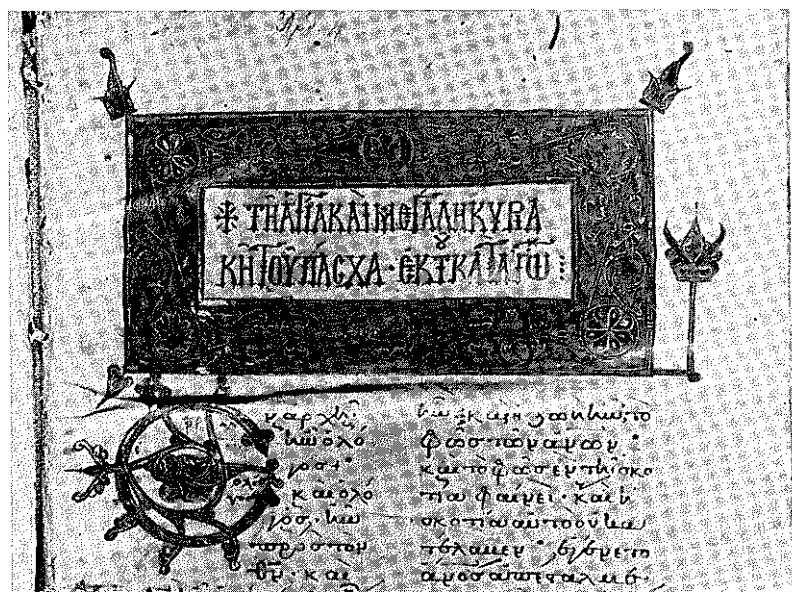 ΤΗ ΑΓΙΑ ΚΑΙ ΜΕΓΑΛΗ ΚΥΡΙΑ
ΚΗ ΤΟΥ ΠΑΣΧΑ · ΕΚ Τ ΚΑΤΑ ΙΩ
ν ἀρχῆ
ἦν ὁ λό
γος·
καὶ ὁ λό
γος· ἦν
πρὸς τὸν
θν· καὶ
ἦν· καὶ ἡ ζωὴ ἦν τὸ
φῶς τῶν ανων·
καὶ τὸ φῶς ἐν τῆ σκο
τία φαίνει· καὶ ἡ
σκοτία αὐτὸ οὐ κα
τέλαβεν· ἐγένετο
ανος ἀπεσταλμέ